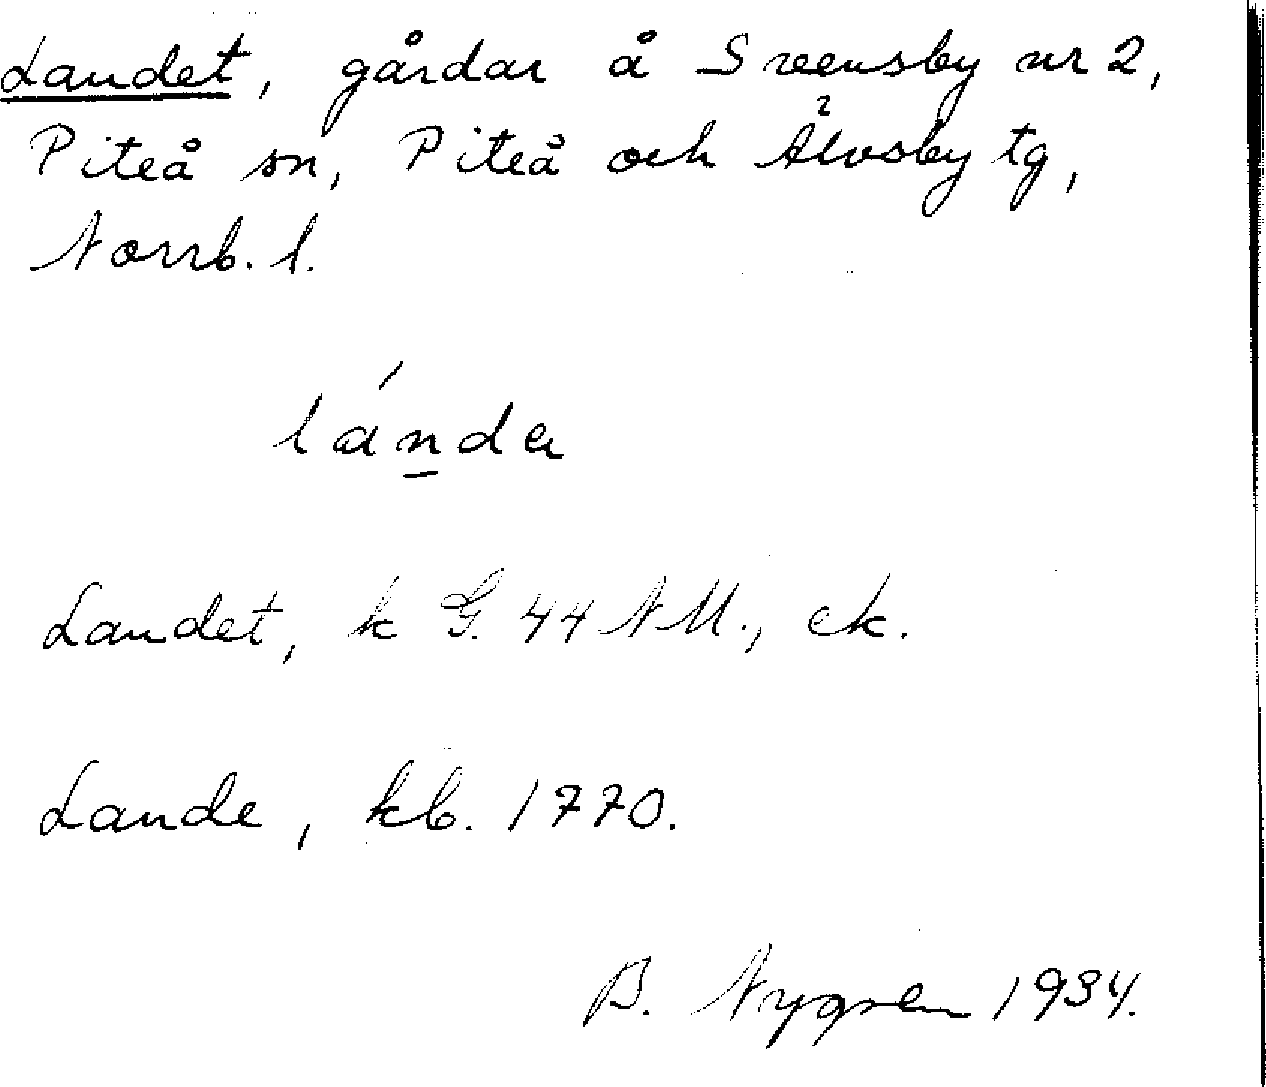 Landet, gårdar å Svensby nr 2,
Piteå sn, Piteå och Älvsby tg,
Norrb. l.
lánda
Landet, k G. 44 NM., ek.
Lande, kb. 1770.
B. Nygren 1934.